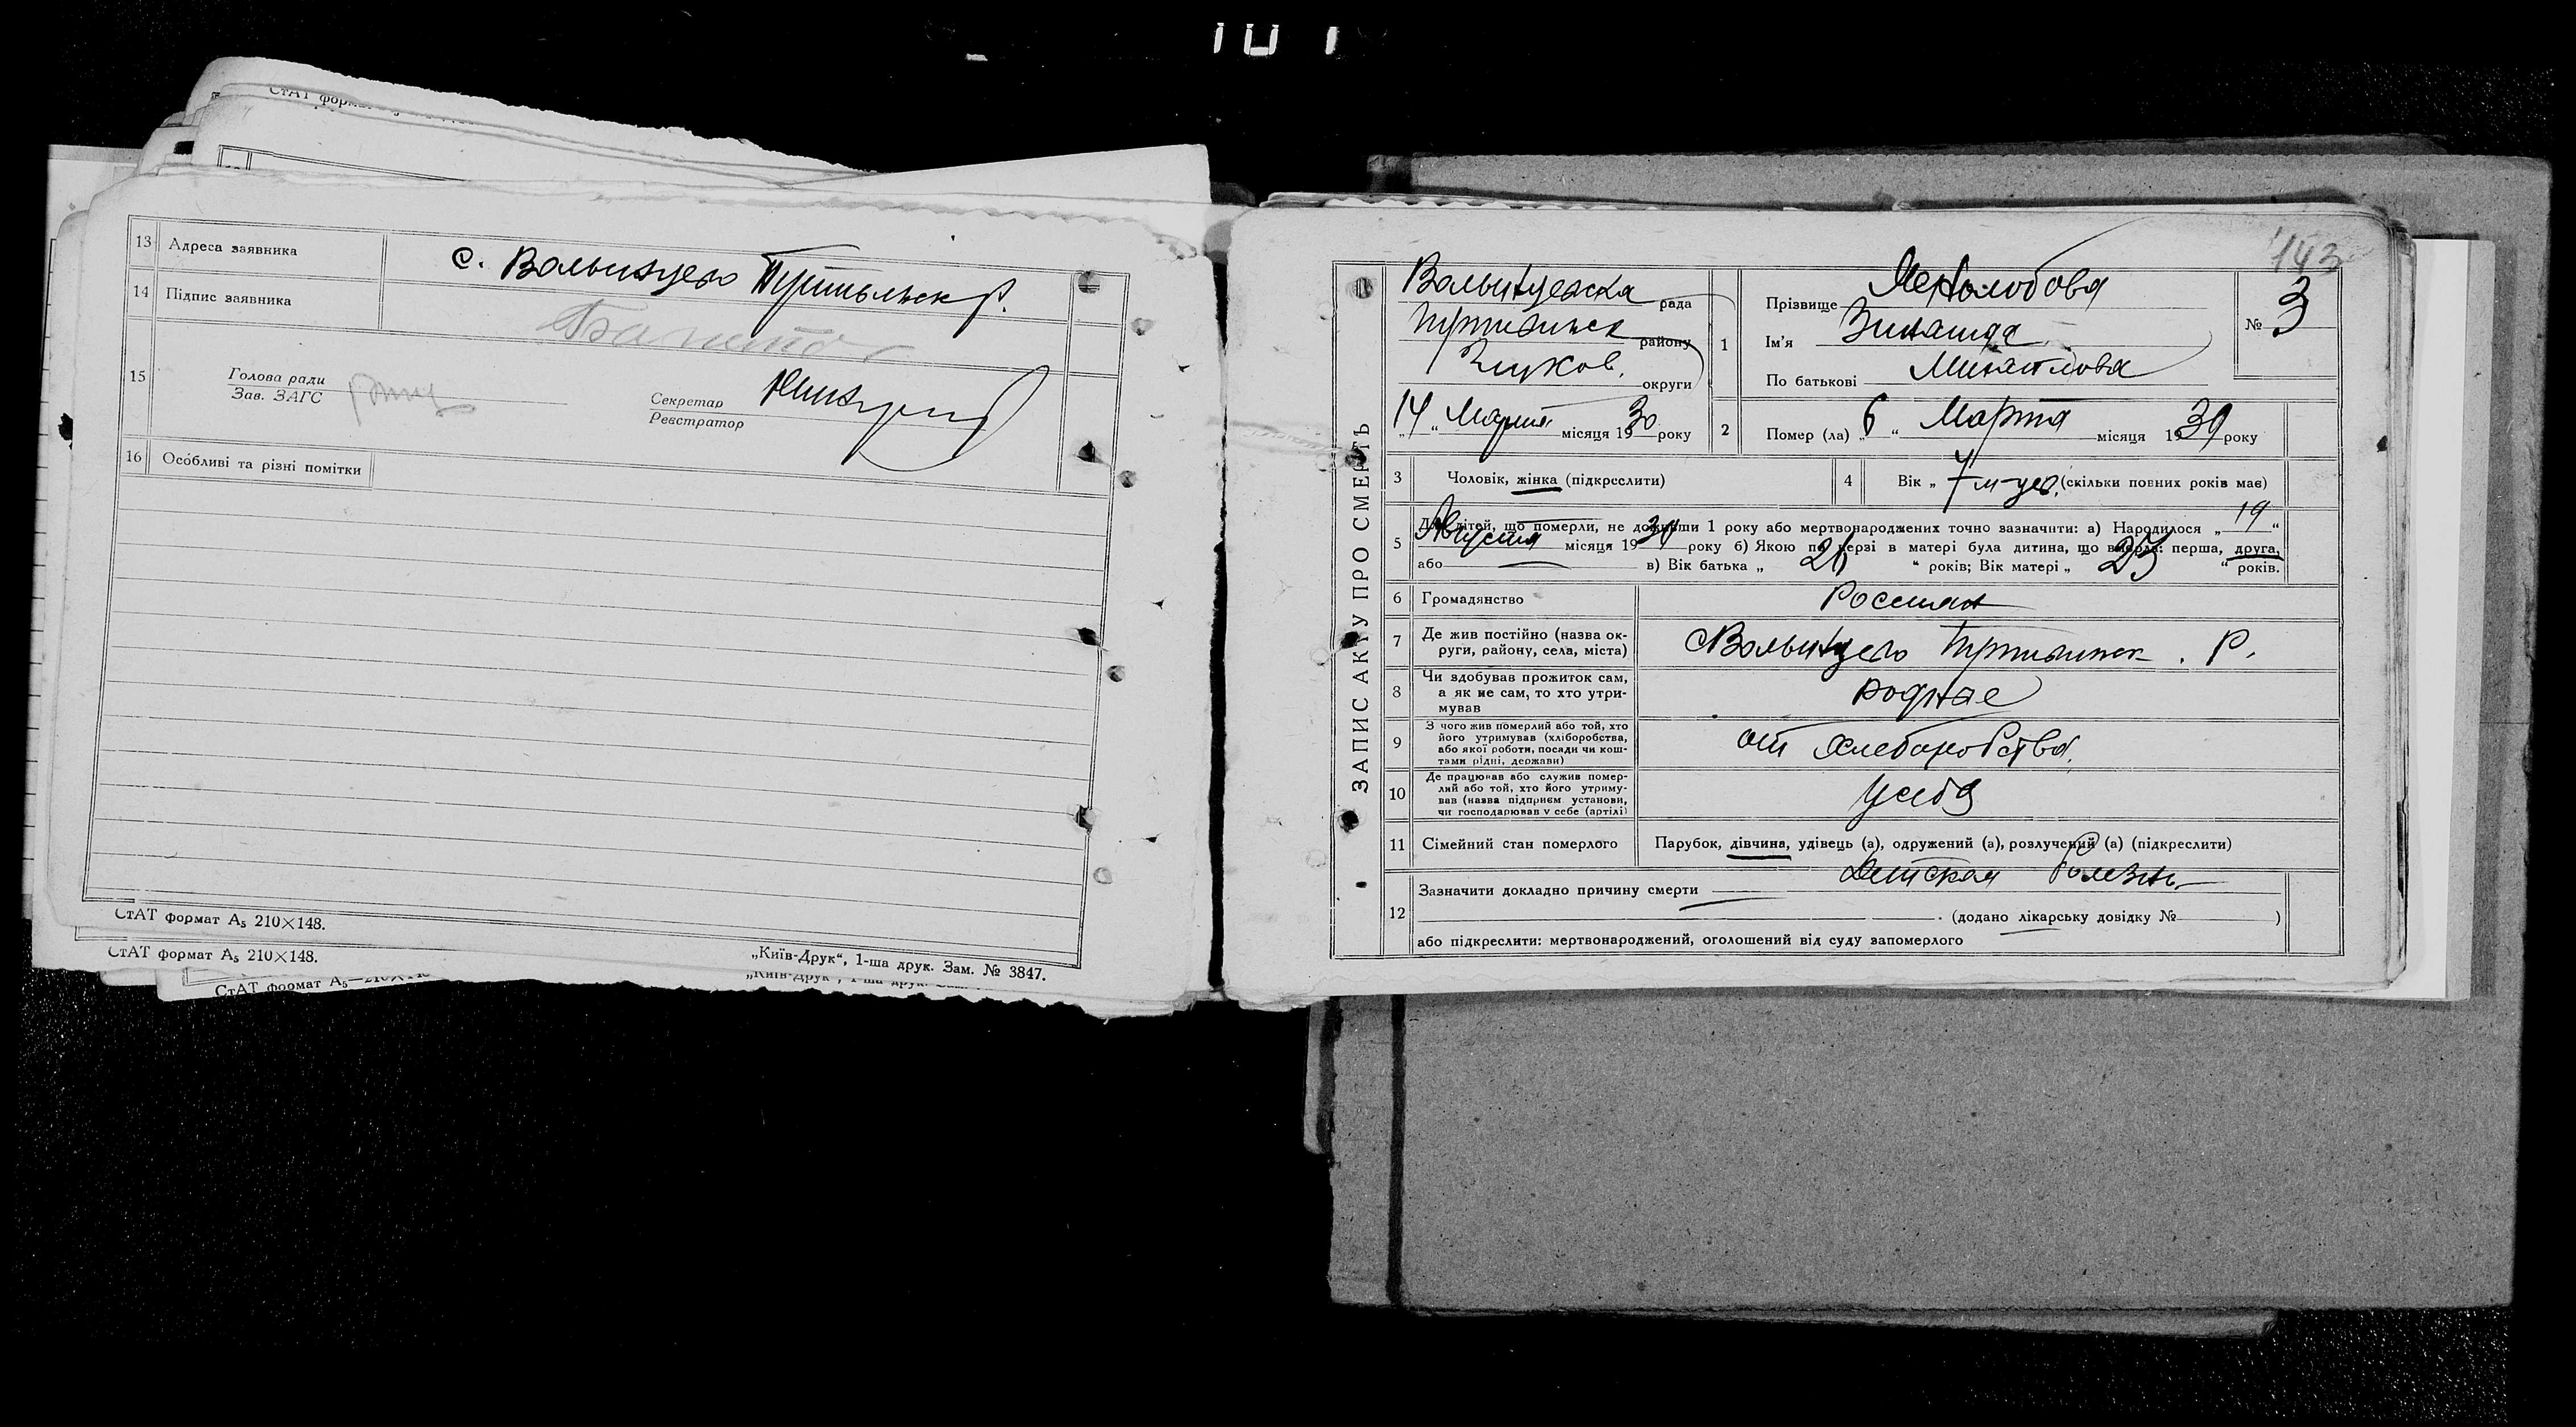 СтАТ
13 Адреса заявника с. Волынцево Путивльск р.
14 Підпис заявника
15 Голова ради
Зав. ЗАГС
Секретар
Реєстратор
16 Особливі та різні помітки
СтАТ формат А₅ 210×148.
СтАТ формат А₅ 210×148.
„Київ-Друк“, 1-ша друк. Зам. № 3847.
СтАТ формат А₅
143
ЗАПИС АКТУ ПРО СМЕРТЬ
Волынцевска рада
Путивльск району
Глухов. округи
14 Марта місяця 1930 року
1 Прізвище
Ім'я Зинаида
По батькові
№ 3
2 Помер (ла) „6“ Марта місяця 1930 року
3 Чоловік, жінка (підкреслити)
4 Вік „7 м-цев. (скільки повних років має)
5 Для дітей, що померли, не доживши 1 року або мертвонароджених точно зазначити: а) Народилося „19“
Августа місяця 19 року б) Якою по черзі в матері була дитина, що вмерла: перша, друга,
або в) Вік батька „26“ років; Вік матері „25“ років.
6 Громадянство Россиян
7 Де жив постійно (назва округи, району, села, міста) с Волынцево Путивльск. р.
8 Чи здобував прожиток сам, а як не сам, то хто утримував
9 З чого жив померлий або той, хто його утримував (хліборобства, або якої роботи, посади чи коштами рідні, держави) от хлеборобства.
10 Де працював або служив померлий або той, хто його утримував (назва підприєм. установи, чи господарював у себе (артілі) у себя
11 Сімейний стан померлого Парубок, дівчина, удівець (а), одружений (а), розлучений (а) (підкреслити)
12 Зазначити докладно причину смерти Детская болезнь
(додано лікарську довідку № )
або підкреслити: мертвонароджений, оголошений від суду запомерлого